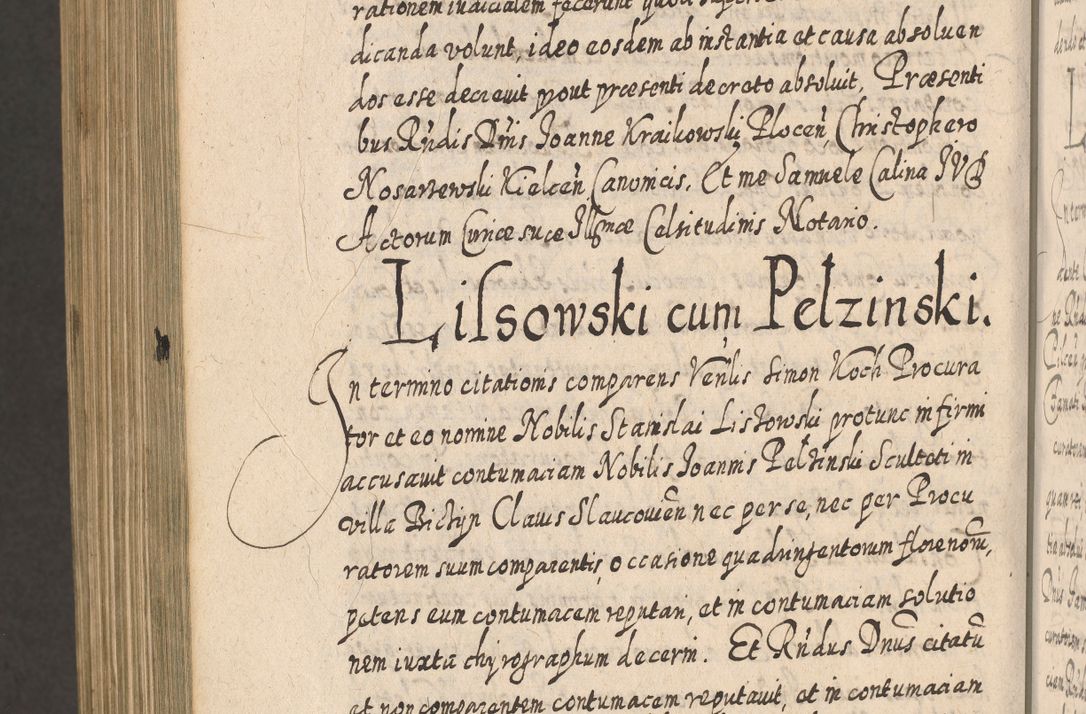 rationem iudicialem fecerunt quod
dicanda volunt, ideo eosdem ab instantia et causa absoluen
dos esse decreuit prout præsenti decreto absoluit, Præsenti
bus Rñdis Dñis Joanne Kraikowski Plocen̄, Christophero
Nosarzewski Kielcen̄ Canonicis, Et me Samuele Calina JVD
Actorum Curiæ suæ Illmæ Celsitudinis Notario.
Lissowski cum Pelzinski.
In termino citationis comparens Venlis Simon Koch Procura
tor et eo nomine Nobilis Stanislai Listowski protunc infirmi
accusauit contumaciam Nobilis Joannis Pelzinski Sculteti in
villa Bictyn Clauis Slaucouien̄ nec per se, nec per Procu
ratorem suum comparentis, occasione quadringentorum florenorū,
petens eum contumacem reputari, et in contumaciam solutio
nem iuxta chyrographum decerni. Et Rñdus Dnūs citatū
et non comparentem contumacem reputauit, et in contumaciam